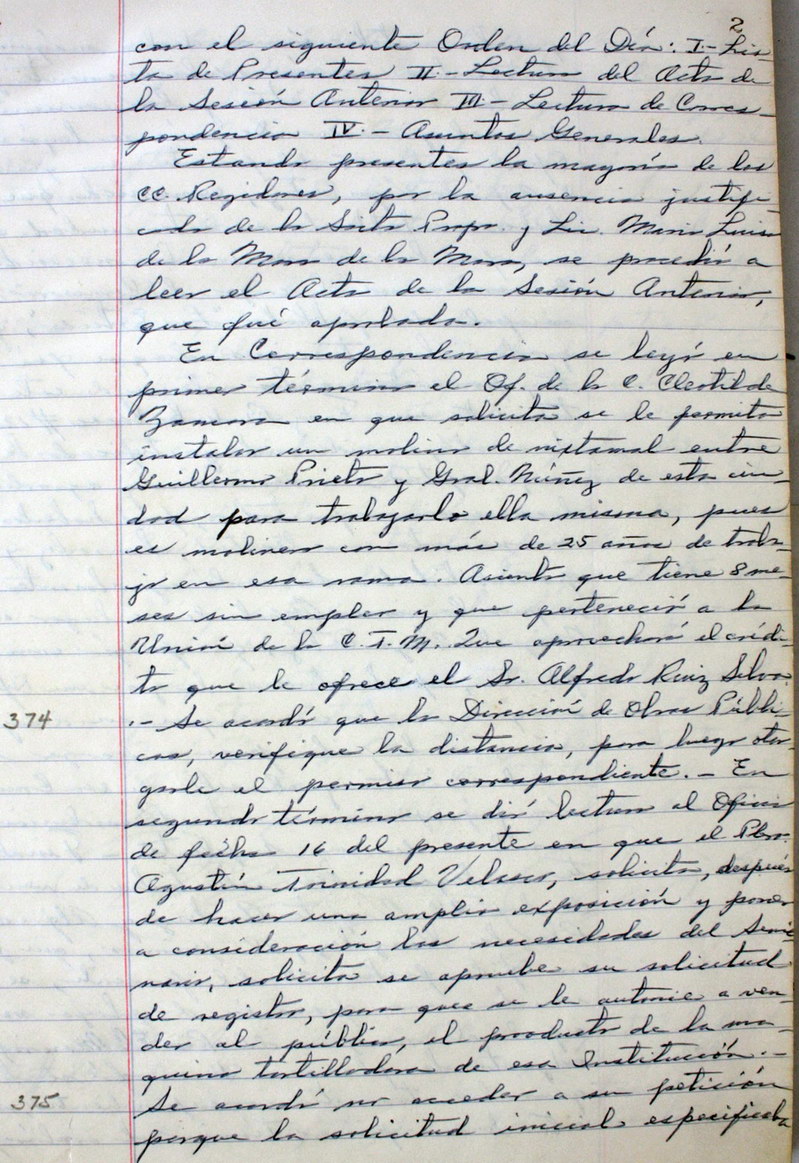 2
con el siguiente Orden del Día: I.- Lis-
ta de Presentes II.- Lectura del Acta de
la Sesión Anterior III.- Lectura de Corres-
pondencia IV.- Asuntos Generales.
Estando presentes la mayoría de los
CC. Regidores, por la ausencia justifi-
cada de la Srita Profa. y Lic. María Luisa
de la Mora de la Mora, se procedió a
leer el Acta de la Sesión Anterior,
que fué aprobada.
En Correspondencia se leyó en
primer término el Of. de la C. Cleotilde
Zamora en que solicita se le permita
instalar un molino de nixtamal entre
Guillermo Prieto y Gral. Núñez de esta ciu-
dad para trabajarlo ella misma, pues
es molinera con más de 25 años de traba-
jo en esa rama. Asienta que tiene 8 me-
ses sin empleo y que perteneció a la
Unión de la C.T.M. Que aprovechará el crédi-
to que le ofrece el Sr. Alfredo Ruiz Silva
374 .- Se acordó que la Dirección de Obras Públi-
cas, verifique la distancia, para luego otor-
garle el permiso correspondiente. - En
segundo término se dió lectura al Oficio
de fecha 16 del presente en que el Pbro.
Agustín Trinidad Velasco, solicita, después
de hacer una amplia exposición y poner
a consideración las necesidades del Semi-
nario, solicita se apruebe su solicitud
de registro, para que se le autorice a ven-
der al público, el producto de la ma-
quina tortilladora de esa Institución.-
375 Se acordó no acceder a su petición
porque la solicitud inicial especificaba